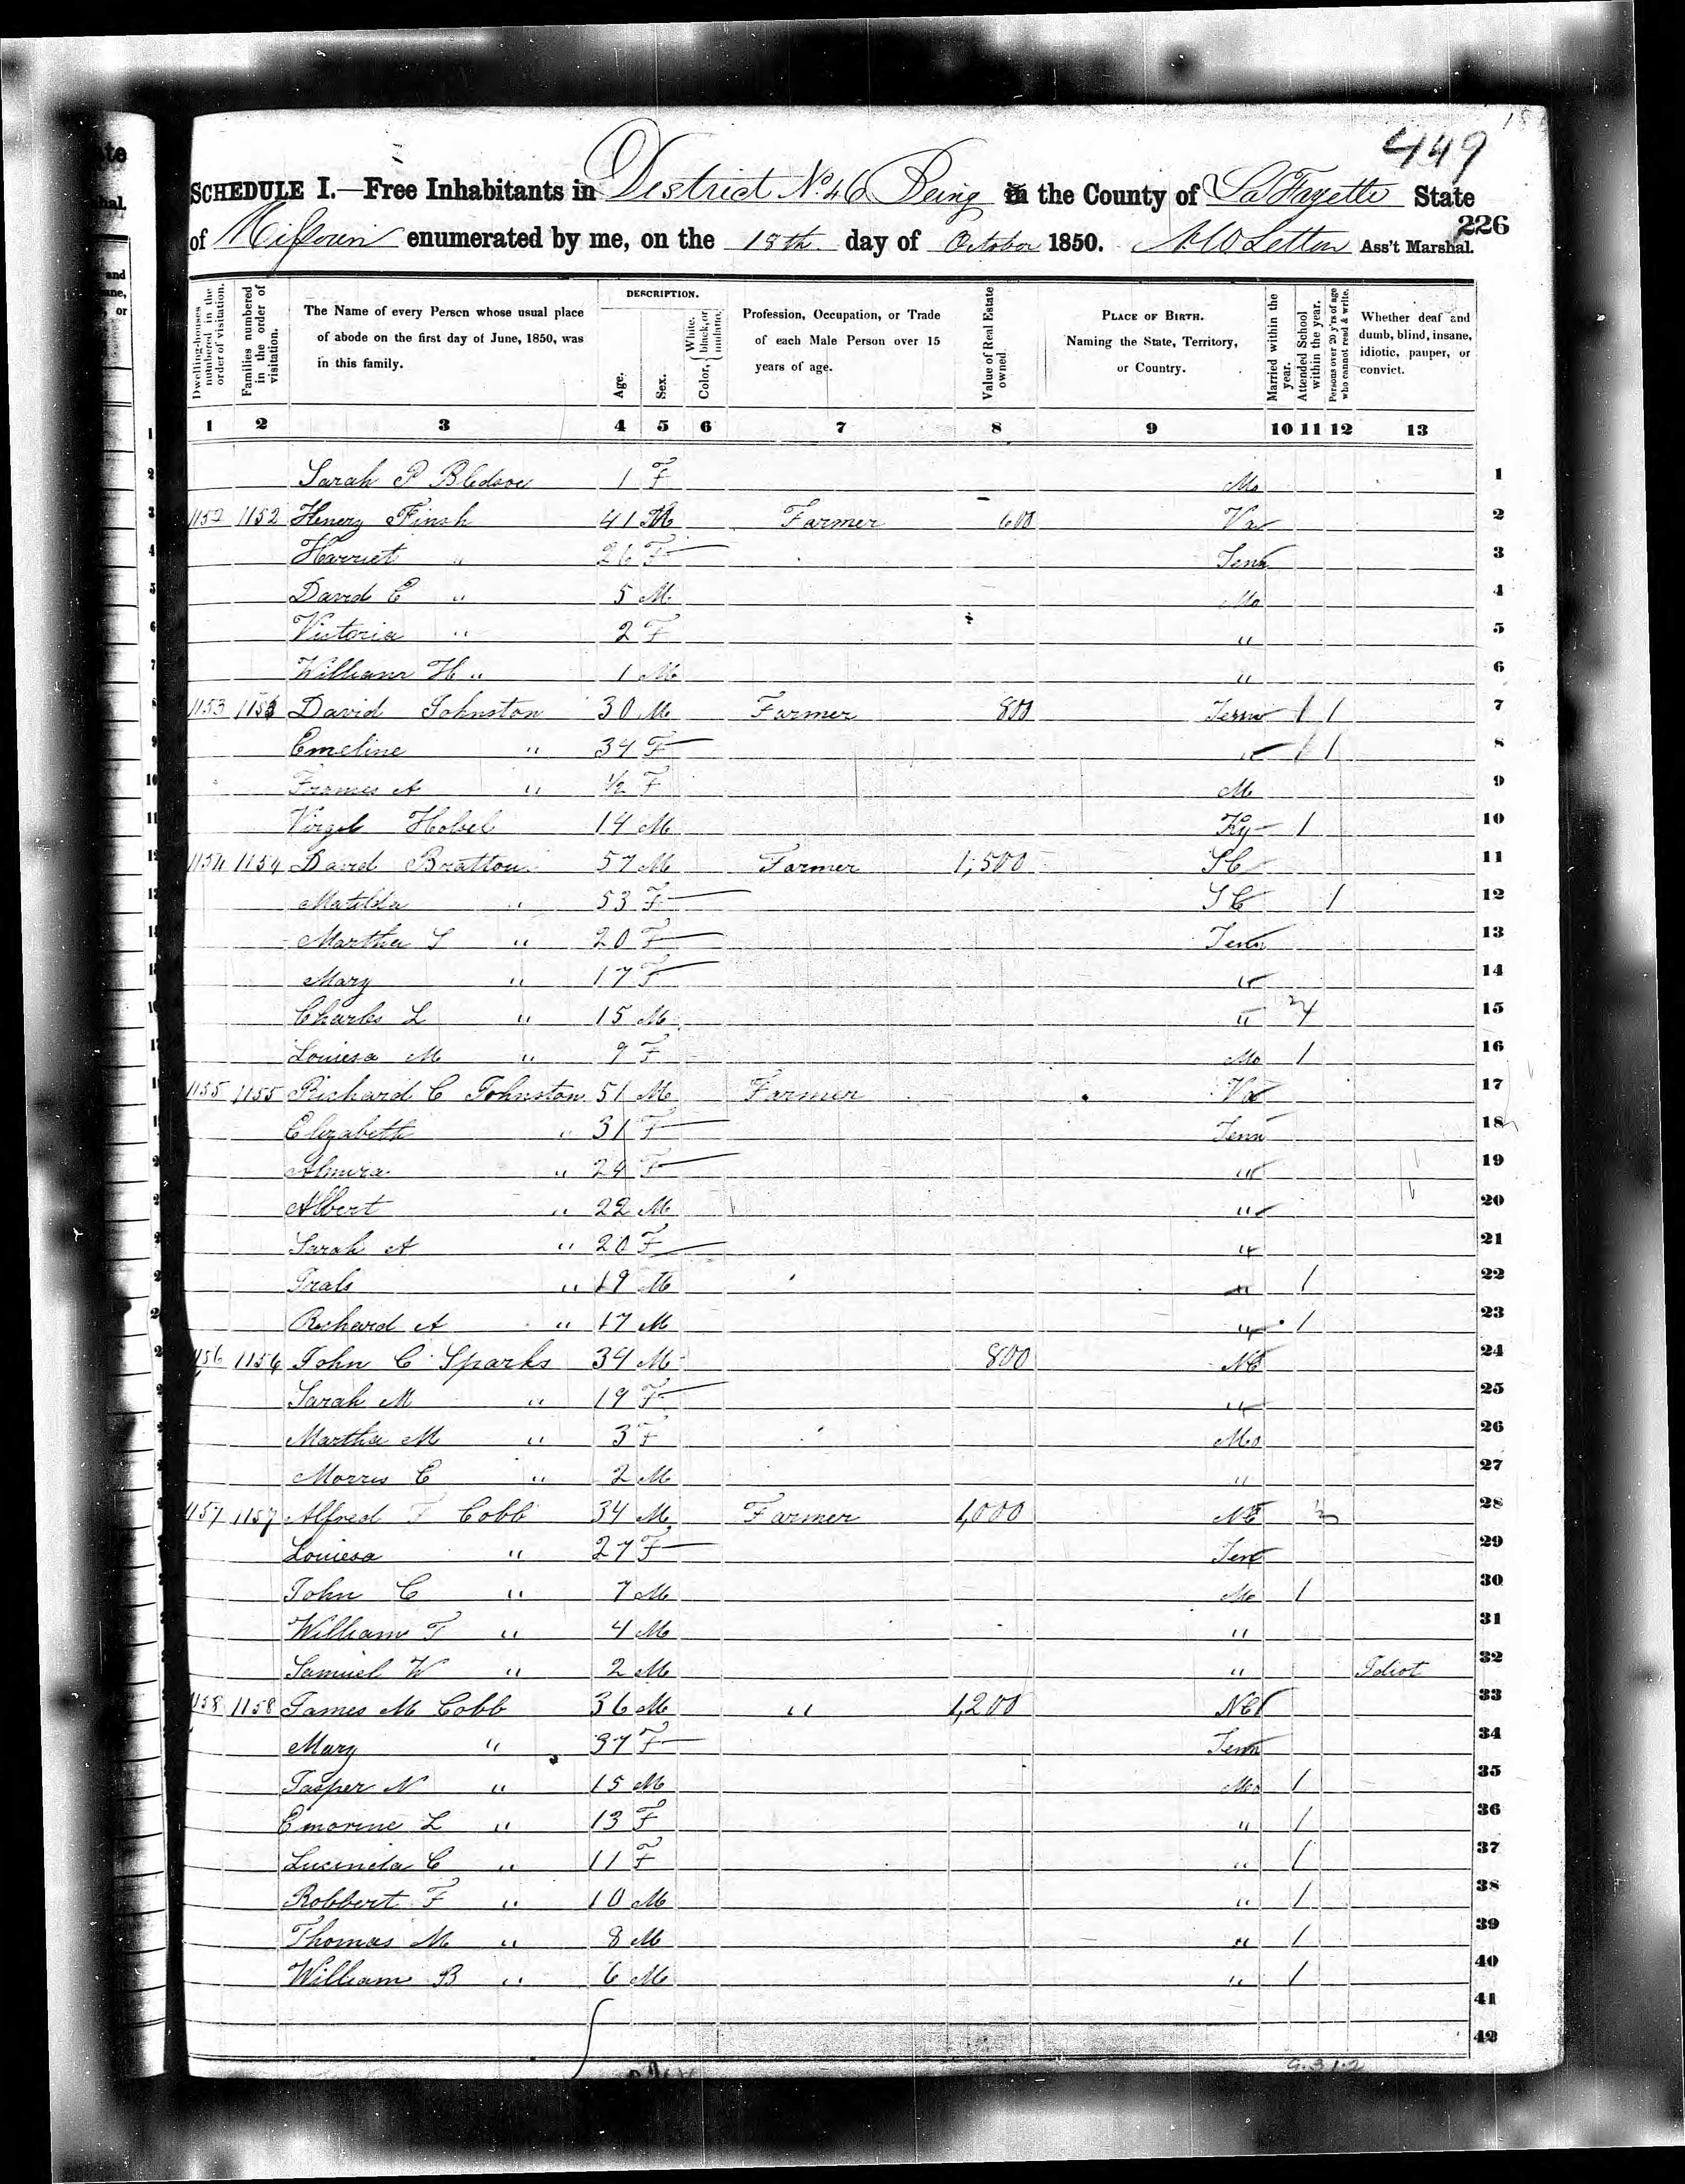 449
SCHEDULE I.—Free Inhabitants in District No 46 Being in the County of La Fayette State
226
of Missouri enumerated by me, on the 18th day of October 1850. Letton Ass't Marshal.
Dwelling-houses numbered in the order of visitation.
Families numbered in the order of visitation.
The Name of every Person whose usual place of abode on the first day of June, 1850, was in this family.
DESCRIPTION.
Age.
Sex.
Color, { White, black, or mulatto.
Profession, Occupation, or Trade of each Male Person over 15 years of age.
Value of Real Estate owned.
PLACE OF BIRTH. Naming the State, Territory, or Country.
Married within the year.
Attended School within the year.
Persons over 20 y'rs of age who cannot read & write.
Whether deaf and dumb, blind, insane, idiotic, pauper, or convict.
1 2 3 4 5 6 7 8 9 10 11 12 13
Sarah P Bledsoe 1 F Mo 1
1152 1152 Henery Finch 41 M Farmer 600 Va 2
Harriet " 26 F Tenn 3
David C " 5 M Mo 4
Victoria " 2 F " 5
William H " 1 M " 6
1153 1153 David Johnston 30 M Farmer 800 Tenn 1 1 7
Emeline " 34 F " 1 1 8
Frances A " 1/2 F M 9
Virgil 14 M Ky 1 10
1154 1154 David Bratton 57 M Farmer 1,500 SC 11
Matilda " 53 F SC 1 12
Martha S " 20 F Tenn 13
Mary " 17 F " 14
Charles L " 15 M " 15
Louiesa M " 9 F Mo 1 16
1155 1155 Richard C Johnston 51 M Farmer Va 17
Elizabeth " 31 F Tenn 18
Almira " 24 F " 19
Albert " 22 M " 20
Sarah A " 20 F " 21
" 19 M " 1 22
Richard A " 17 M " 1 23
1156 1156 John C Sparks 34 M 800 NC 24
Sarah M " 19 F " 25
Martha M " 3 F Mo 26
Morris C " 2 M " 27
1157 1157 Alfred F Cobb 34 M Farmer 1,000 NC 28
Louiesa " 27 F Ten 29
John C " 7 M Mo 1 30
William T " 4 M " 31
Samuel W " 2 M " Idiot 32
1158 1158 James M Cobb 36 M " 1,200 NC 33
Mary " 37 F Tenn 34
Jasper N " 15 M Mo 1 35
Emorine L " 13 F " 1 36
Lucinda C " 11 F " 1 37
Robbert F " 10 M " 1 38
Thomas M " 8 M " 1 39
William B " 6 M " 1 40
41
42